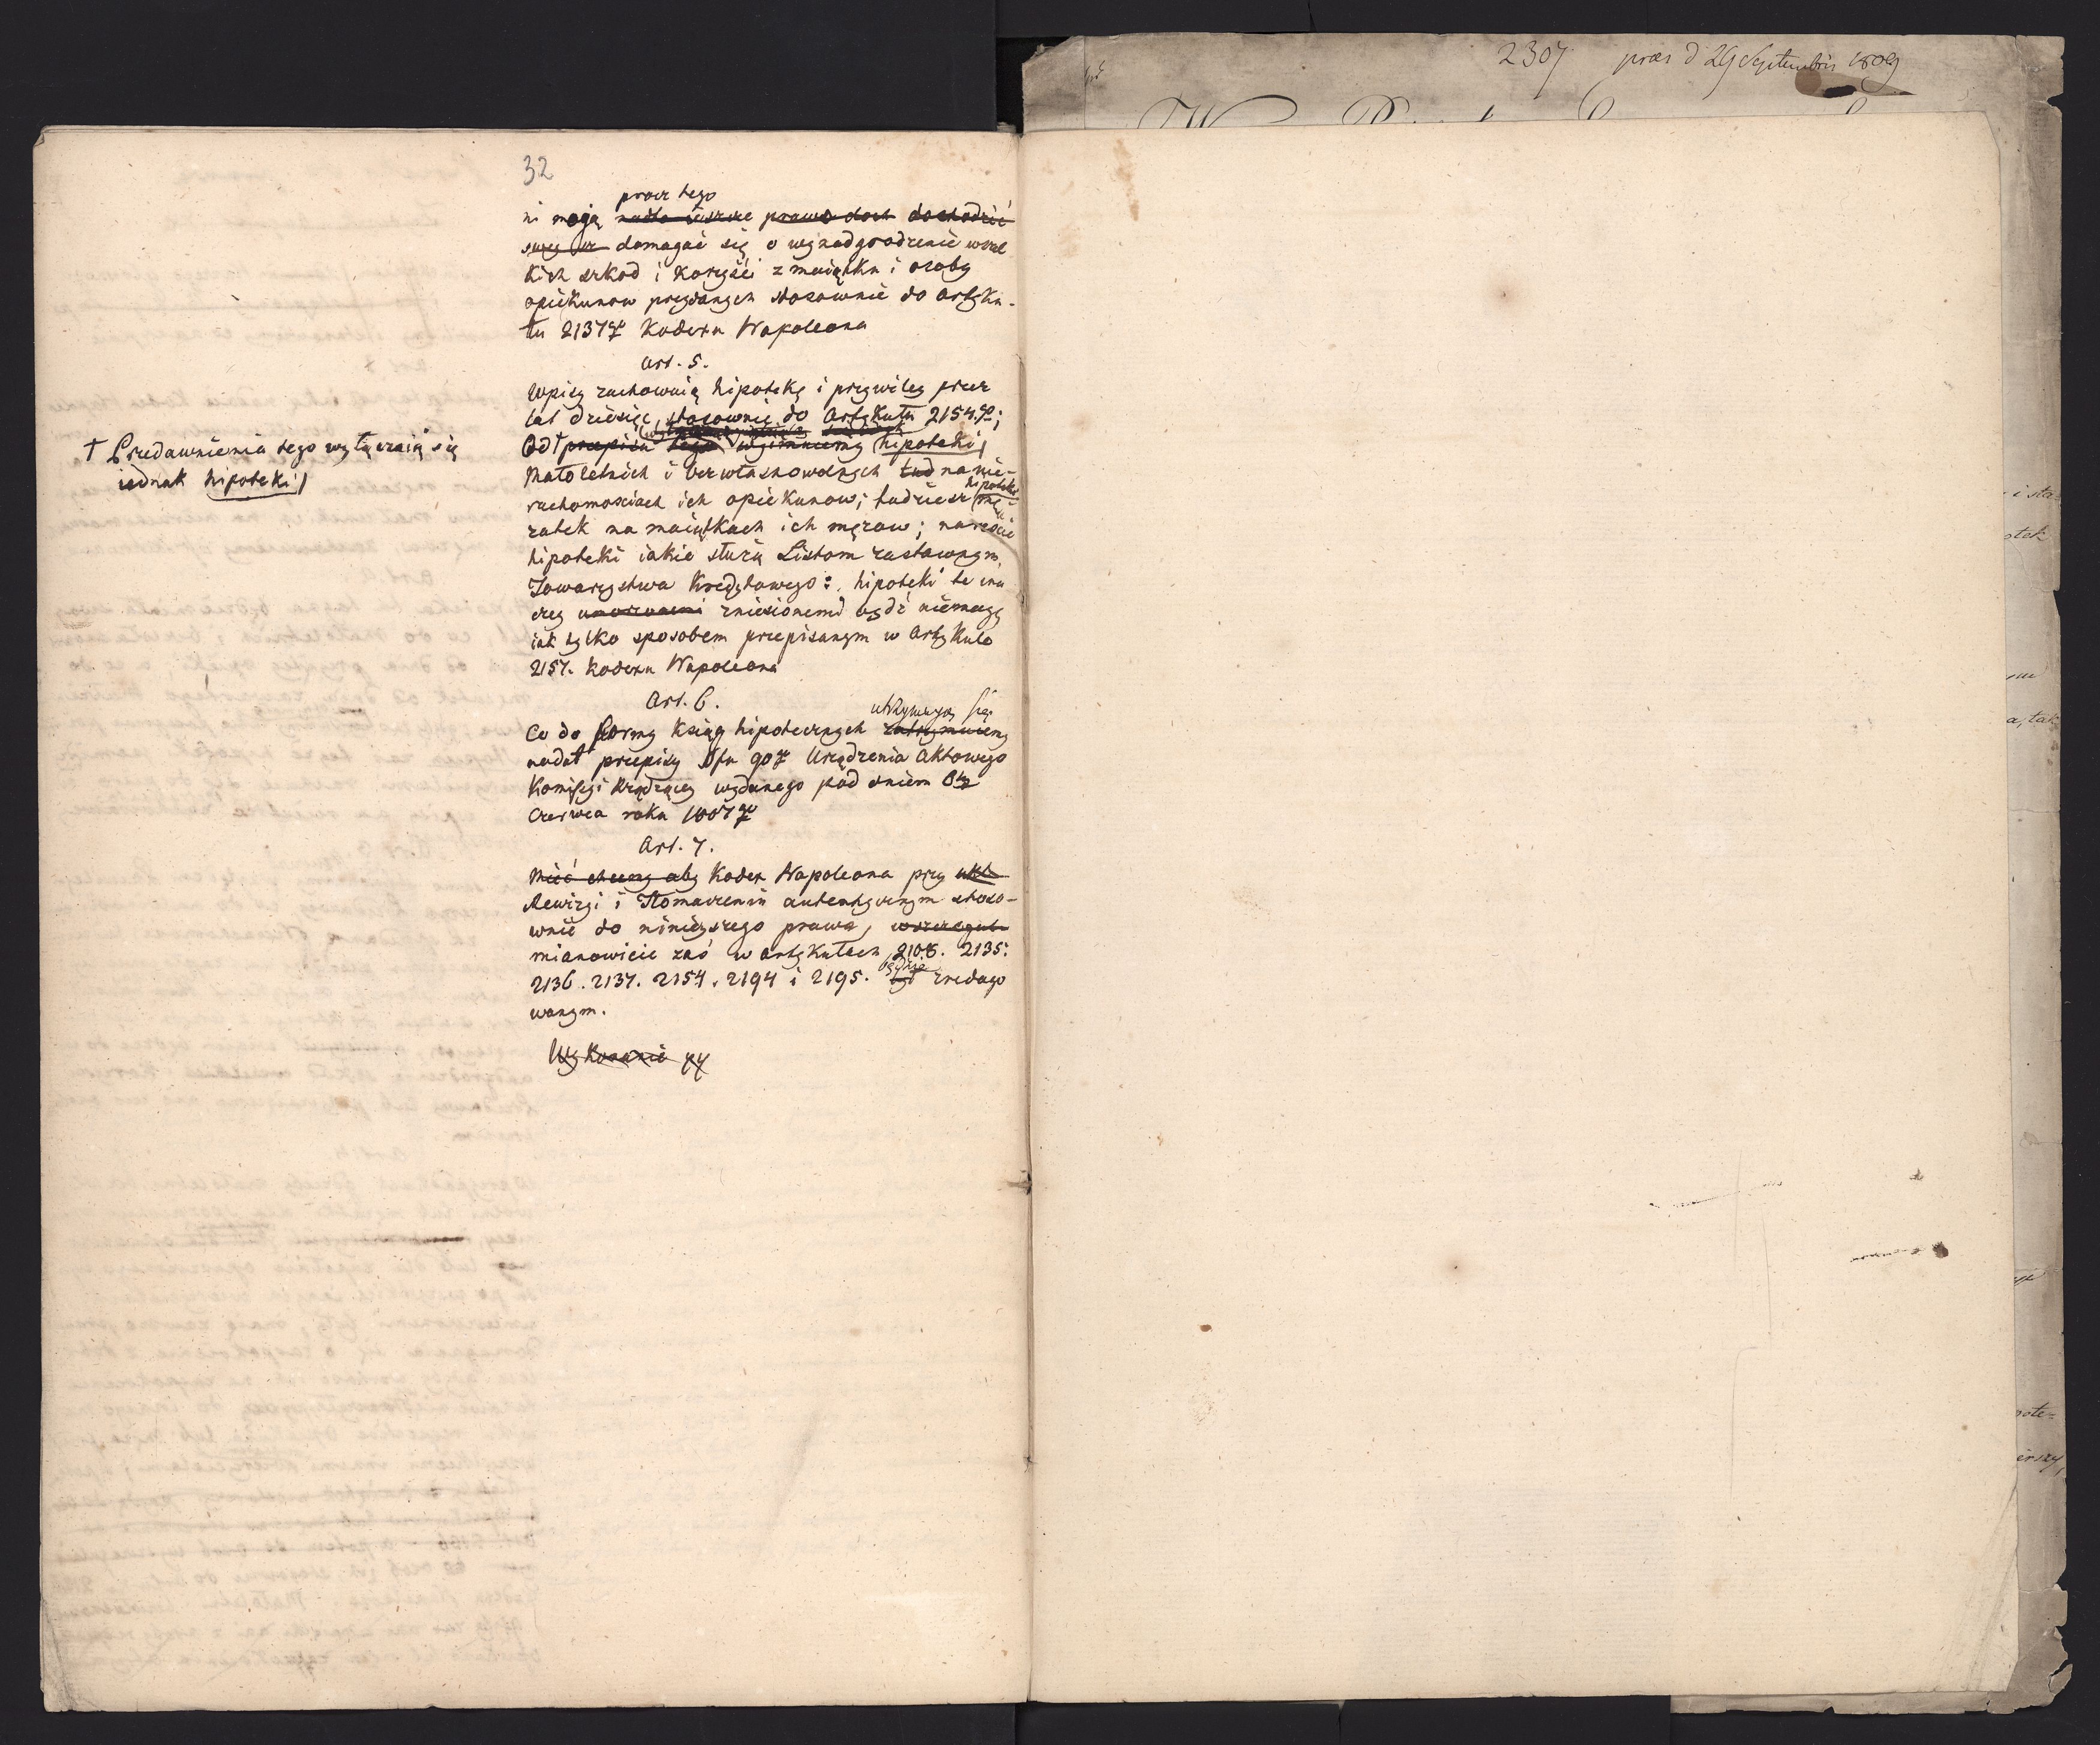 32
procz tego
ni mogą nadto jeszcze prawo doch dochodzić
swey ur domagać się o wynadgrodzenie wszel
kich szkod i korzyści z maiątku i osoby
opiekunow przydanych stosownie do artyku-
łu 2137go Kodexu Napoleona
Art. 5.
Wpisy zachowuią hipotekę i przywiley przez
lat dziesięć, stosownie do Artykułu 2154.go;
Od † przepisu tego wyimuiemy hipoteki
† Przedawnienia tego wyłączaią się
iednak hipoteki
Małoletnich i bezwłasnowolnych tud na nie-
ruchomościach ich opiekunow; tudziesz hipoteki mę-
żatek na maiątkach ich mężow; nareście
hipoteki iakie służą Listom zastawnym
Towarzystwa Kredytowego: hipoteki te ina
czey umorzonemi zniesionemi bydź niemogą
iak tylko sposobem przepisanym w Artykule
2157. Kodexu Napoleona
Art. 6.
utrzymują się
Co do formy Ksiąg hipotecznych zatrzymuiemy
nadal przepisy §fu 90go Urządzenia Aktowego
Komissyi Rządzącey wydanego pod dniem 8ym
Czerwca roku 1807go
Art. 7.
Mieć chcemy aby Kodex Napoleona przy ukł
Rewizyi i Tłomaczeniu autentycznym stoso-
wnie do ninieyszego prawa, wszczegul
mianowicie zaś w artykułach 2108. 2135.
2136. 2137. 2154. 2194 i 2195. był będzie zredago
wanym.
Wykonanie
2307 praes d 29 Septembris 1809